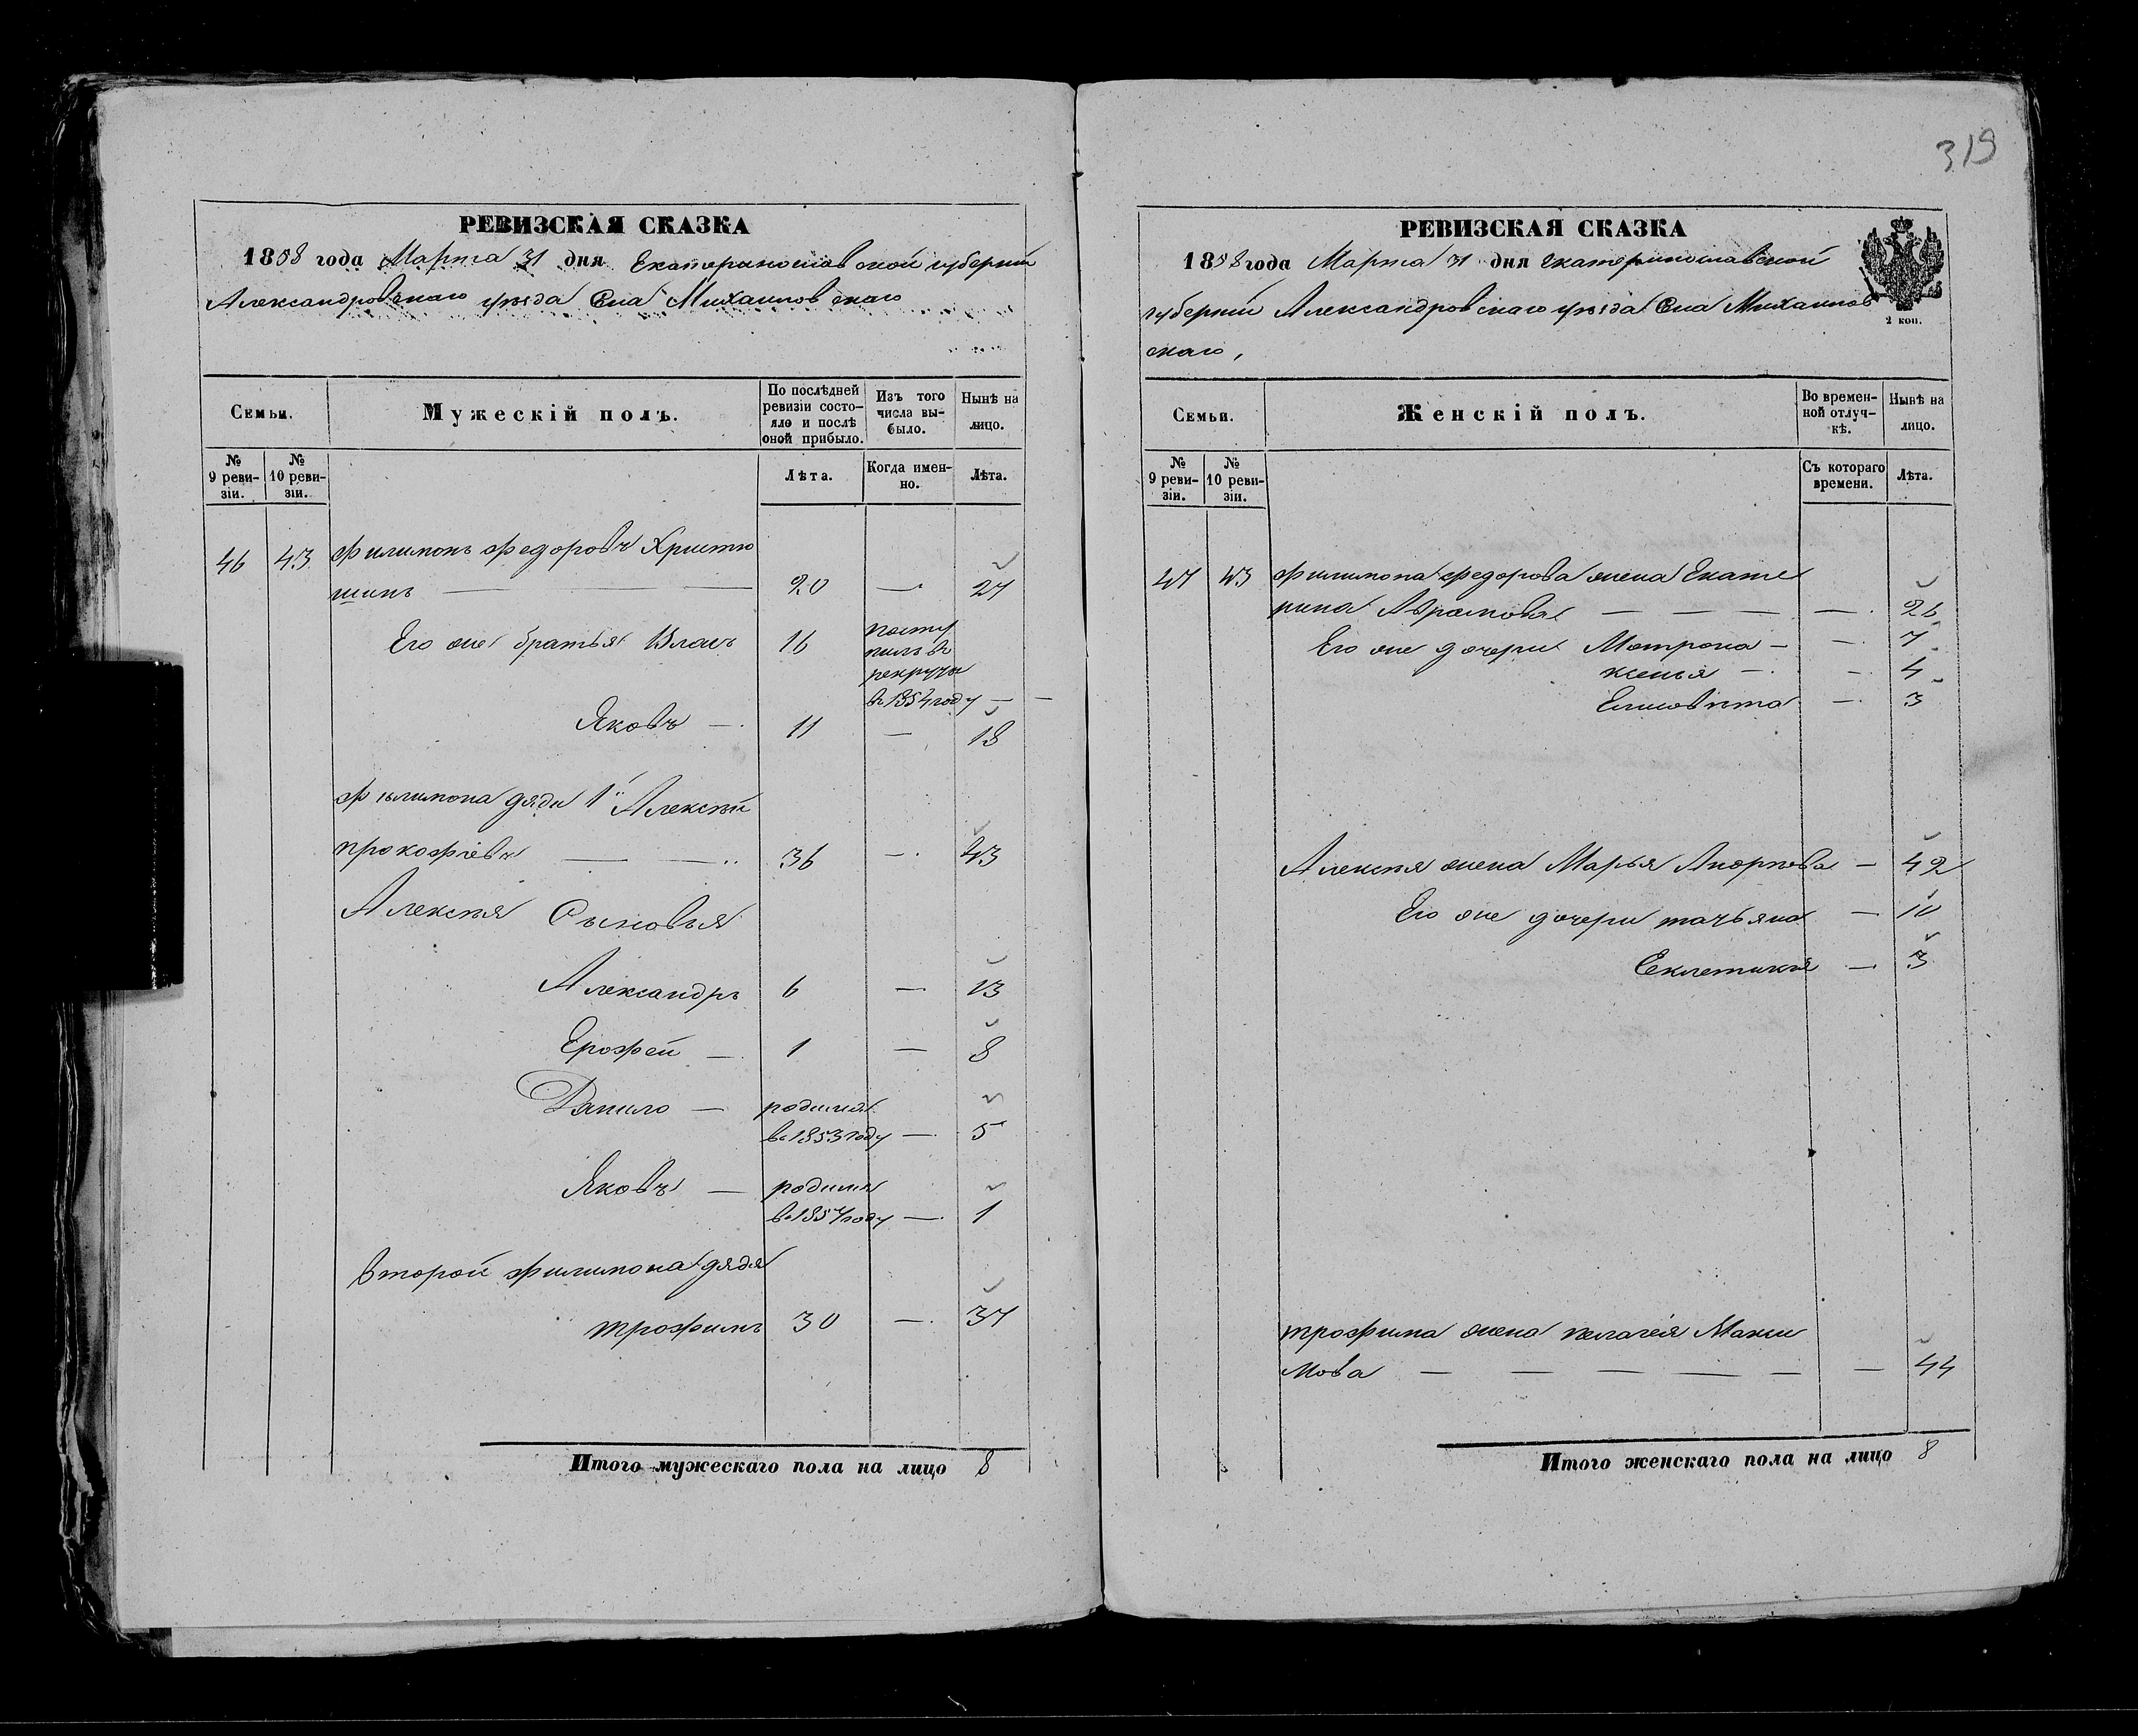 319
РЕВИЗСКАЯ СКАЗКА
1858 года Марта 31 дня Екатеринославской губернии
Александровскаго уѣзда Села Михайловскаго
Семьи.
Мужескій полъ.
По послѣдней ревизіи состо-
яло и послѣ оной прибыло.
Изъ того числа вы-
было.
Нынѣ на лицо.
№ 9 реви-
зіи.
№ 10 реви-
зіи.
Лѣта.
Когда имен-
но.
Лѣта.
46 43 Филимонъ Федоровъ Христю
шинъ — 20 — 27
Его же братья Власъ 16 посту
пилъ въ
рекруты
въ 1854 году — —
Яковъ — 11 — 18
Филимона дяди 1й Алексѣй
прокофіевъ — — 36 — 43
Алексѣя Сыновья
Александръ 6 — 13
Ерофей — 1 — 8
Данило — родился
въ 1853 году — 5
Яковъ — родился
въ 1857 году — 1
Второй Филимона дядя
трофимъ 30 — 37
Итого мужескаго пола на лицо 8
РЕВИЗСКАЯ СКАЗКА
1858 года Марта 31 дня Екатеринославской
губернии Александровскаго уѣзда Села Михайлов
скаго,
2 коп.
Семьи.
Женскій полъ.
Во времен-
ной отлуч-
кѣ.
Нынѣ на лицо.
№ 9 реви-
зіи.
№ 10 реви-
зіи.
Съ котораго времени.
Лѣта.
47 43 Филимона Федорова жена Екате
рина Абрамова — — — — 26
Его же дочери Матрона — — 7
ксенья — — 4
Елисовѣта — 3
Алексѣя жена Марья — 42
Его же дочери татьяна — 10
— 3
трофима жена пелагея Макси
мова — — — — — — 44
Итого женскаго пола на лицо 8